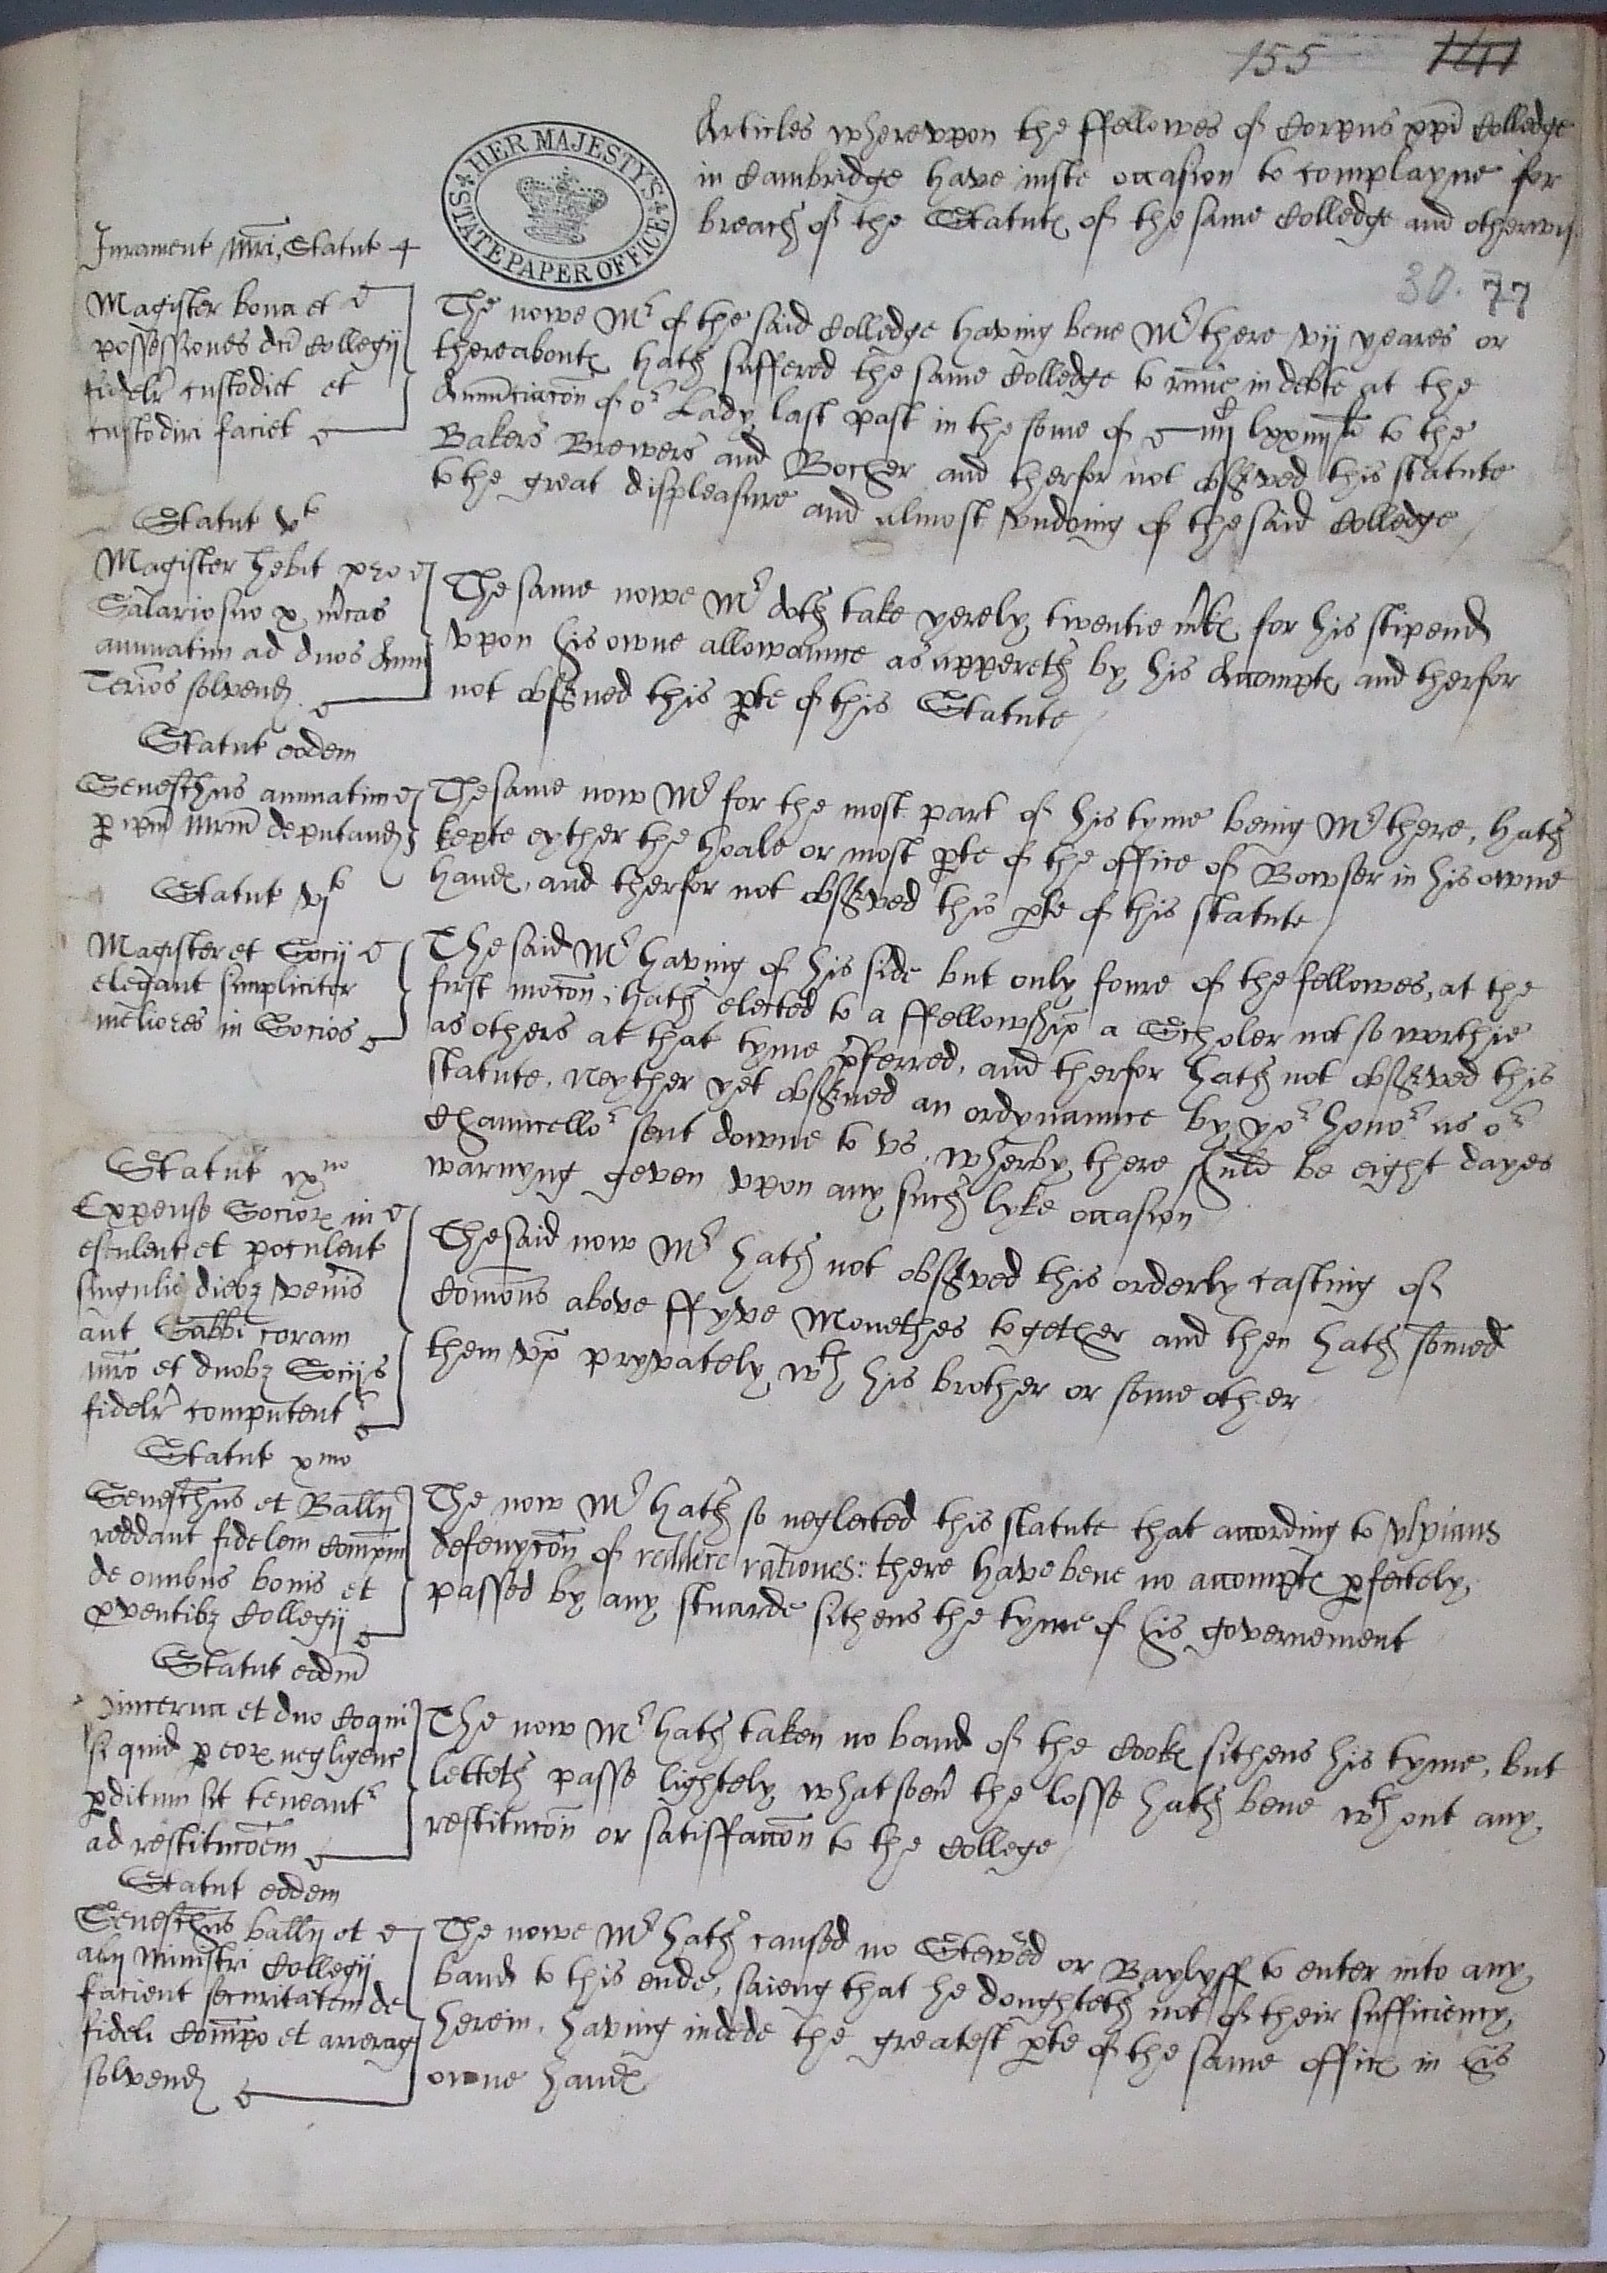 155 141
HER MAJESTY'S STATE PAPER OFFICE
Articles wherevpon the ffellowes of Corpus xpi Colledge
in Cambridge have iuste occasion to complayne for
breach of the Statut(es) of the same Colledge and otherwis
30. 77
Iurament Mri, Statut 4
Magister bona et
possessiones dci Collegij
fidelr custodiet et
custodiri faciet
The nowe Mr of the said Colledge having bene Mr there vij yeares or
thereabout(es) hath suffered the same Colledge to runne in debte at the
Annunciacon of or Lady last past in the some of lxxiiijli to the
Bakers Brewers and Bocher and therfor not observed this statute
to the great displeasure and almost vndoing of the said Colledge
Statut vto
Magister hebit pro
Salario suo x mrcas
annuatim ad duos Anni
Terios solvend
The same nowe Mr doth take yerely twentie mrk(es) for his stipend
vpon his owne allowaunce as appereth by his Accompt(es) and therfor
not obserued this pte of this Statute
Statut eodem
Seneschus annuatim
p ipm Mrm deputand
The same now Mr for the most part of his tyme being Mr there, hath
kepte eyther the hoale or most pte of the office of Bowser in his owne
hand(es), and therfor not observed this pte of this statute
Statut vjto
Magister et Socij
elegant simpliciter
meliores in Socios
The said Mr having of his side but only foure of the fellowes, at the
first mocon, hath elected to a ffellowship a Scholer not so worthie
as others at that tyme pferred, and therfor hath not observed this
statute, neyther yet obserued an ordynaunce by yor honor as or
Chauncellor sent downe to vs, wherby there shuld be eight dayes
warnyng geven vpon any such lyke occasion
Statut ixno
Expense Socior(um) in
esculent et poculent
singulis diebz venis
aut Sabbi coram
mro et duobz Socijs
fidelr computent
The said now Mr hath not observed this orderly casting of
Comons above ffyve Monethes together and then hath somed
them vp pryvately wth his brother or some other
Statut xmo
Seneschus et Ballij
reddant fidelem Compm
de omnibus bonis et
pventibz Collegij
The now Mr hath so neglected this statute that according to vlpians
defenycon of reddere rationes: there have bene no accompt(es) pfectely
passed by any stuarde sithens the tyme of his governement
Statut eodm
Pincerna et duo Coqui
si quid p eor(um) negligenc
pditum sit teneantr
ad restitucoem
The now Mr hath taken no band of the Cook(es) sithens his tyme, but
letteth passe lightely whatsoeur the losse hath bene wthout any
restitucon or satisffaccon to the College
Statut eodem
Seneschus ballij et
alij ministri Collegij
facient securitatem de
fideli Compo et arrerag
solvend
The nowe Mr hath caused no Steward or Baylyff to enter into any
band to this ende, saieng that he doughteth not of their sufficiency
herein, having indede the greatest pte of the same office in his
owne hand(es)